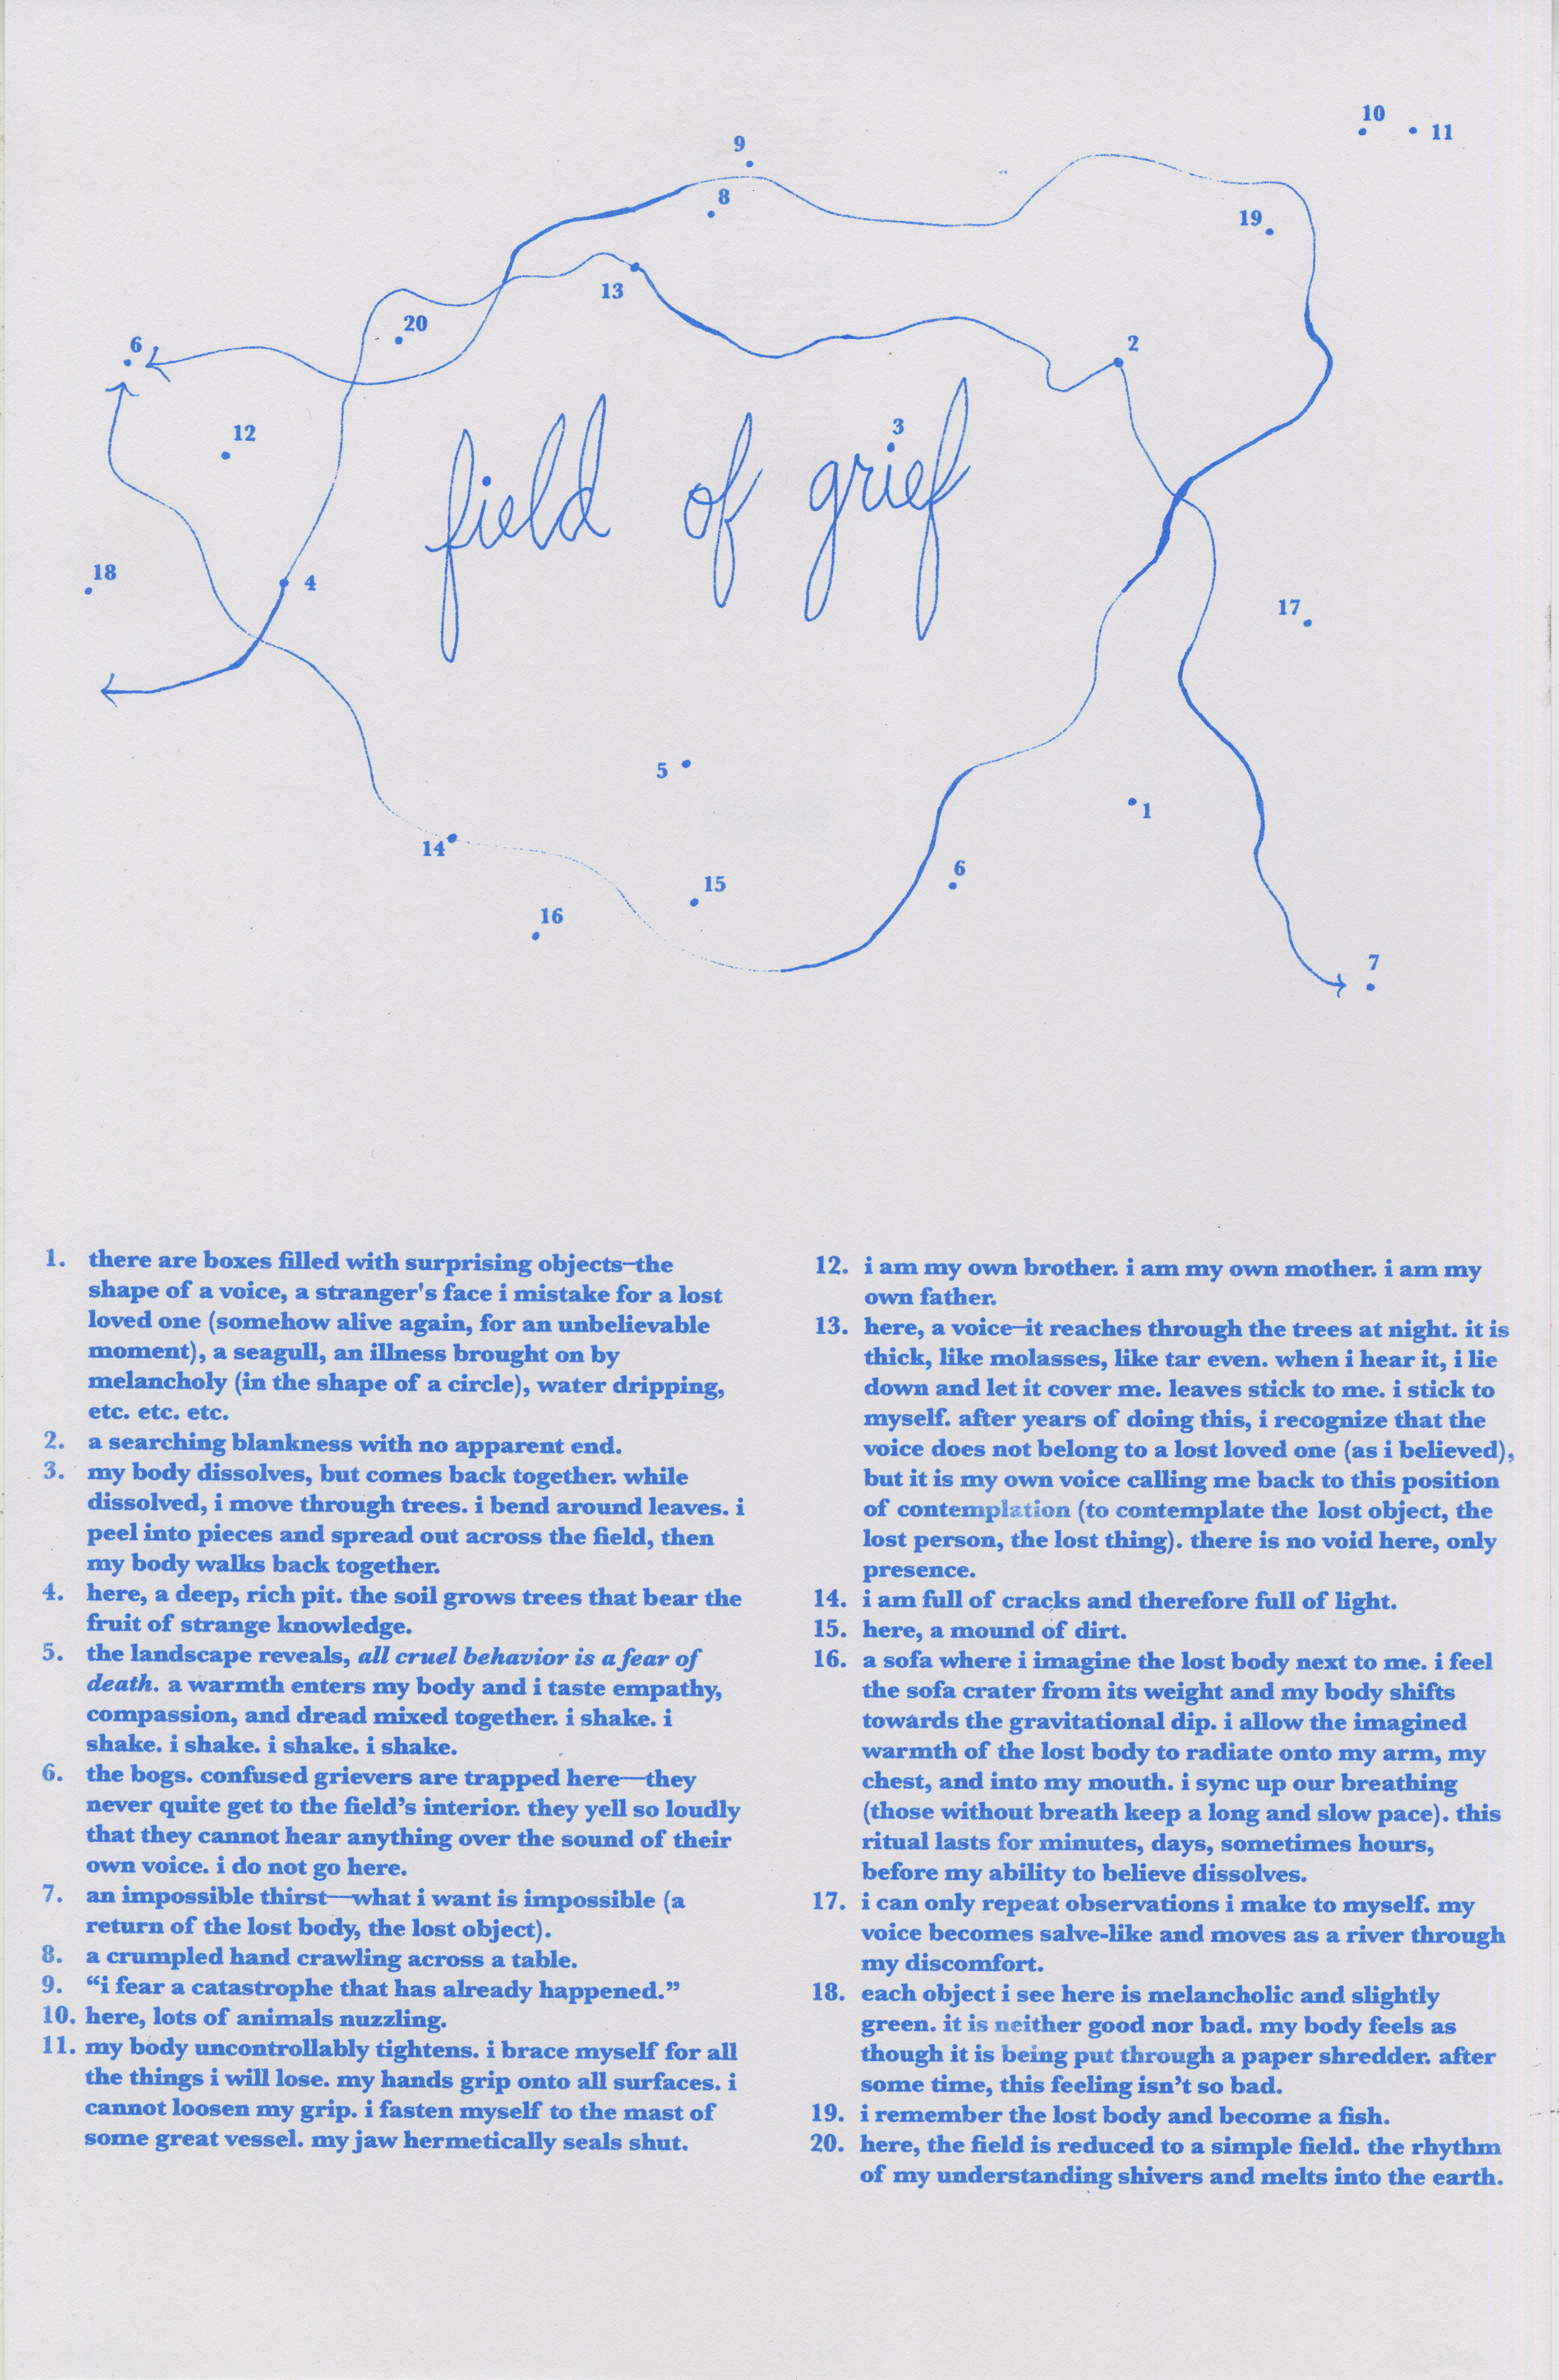 10
11
9
8
19
13
20
6
2
12
3
field of grief
18
4
17
5
1
14
15
6
16
7
1. there are boxes filled with surprising objects—the
shape of a voice, a stranger's face i mistake for a lost
loved one (somehow alive again, for an unbelievable
moment), a seagull, an illness brought on by
melancholy (in the shape of a circle), water dripping,
etc. etc. etc.
2. a searching blankness with no apparent end.
3. my body dissolves, but comes back together. while
dissolved, i move through trees. i bend around leaves. i
peel into pieces and spread out across the field, then
my body walks back together.
4. here, a deep, rich pit. the soil grows trees that bear the
fruit of strange knowledge.
5. the landscape reveals, all cruel behavior is a fear of
death. a warmth enters my body and i taste empathy,
compassion, and dread mixed together. i shake. i
shake. i shake. i shake. i shake.
6. the bogs. confused grievers are trapped here—they
never quite get to the field’s interior. they yell so loudly
that they cannot hear anything over the sound of their
own voice. i do not go here.
7. an impossible thirst—what i want is impossible (a
return of the lost body, the lost object).
8. a crumpled hand crawling across a table.
9. “i fear a catastrophe that has already happened.”
10. here, lots of animals nuzzling.
11. my body uncontrollably tightens. i brace myself for all
the things i will lose. my hands grip onto all surfaces. i
cannot loosen my grip. i fasten myself to the mast of
some great vessel. my jaw hermetically seals shut.
12. i am my own brother. i am my own mother. i am my
own father.
13. here, a voice—it reaches through the trees at night. it is
thick, like molasses, like tar even. when i hear it, i lie
down and let it cover me. leaves stick to me. i stick to
myself. after years of doing this, i recognize that the
voice does not belong to a lost loved one (as i believed),
but it is my own voice calling me back to this position
of contemplation (to contemplate the lost object, the
lost person, the lost thing). there is no void here, only
presence.
14. i am full of cracks and therefore full of light.
15. here, a mound of dirt.
16. a sofa where i imagine the lost body next to me. i feel
the sofa crater from its weight and my body shifts
towards the gravitational dip. i allow the imagined
warmth of the lost body to radiate onto my arm, my
chest, and into my mouth. i sync up our breathing
(those without breath keep a long and slow pace). this
ritual lasts for minutes, days, sometimes hours,
before my ability to believe dissolves.
17. i can only repeat observations i make to myself. my
voice becomes salve-like and moves as a river through
my discomfort.
18. each object i see here is melancholic and slightly
green. it is neither good nor bad. my body feels as
though it is being put through a paper shredder. after
some time, this feeling isn’t so bad.
19. i remember the lost body and become a fish.
20. here, the field is reduced to a simple field. the rhythm
of my understanding shivers and melts into the earth.